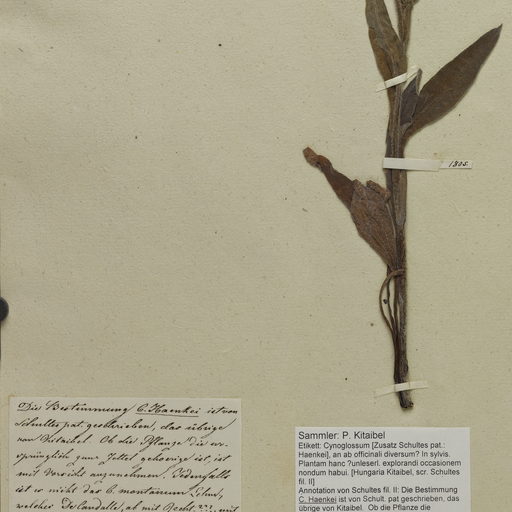 1805.
Die Bestimmung C. Haenkei ist von
Schult. pat. geschrieben, das übrige
von Kitaibel. Ob die Pflanze die
zu
ursprünglich zum Zettel gehörige ist, ist
mit Vorsicht anzunehmen. Jedenfalls
ist es nicht das C. montanum Lehm,
welcher
Sammler: P. Kitaibel
Etikett: Cynoglossum [Zusatz Schultes pat.:
Haenkei], an ab officinali diversum? In sylvis.
Plantam hanc ?unleserl. explorandi occasionem
nondum habui. [Hungaria Kitaibel, scr. Schultes
fil. II]
Annotation von Schultes fil. II: Die Bestimmung
C. Haenkei ist von Schult. pat geschrieben, das
übrige von Kitaibel. Ob die Pflanze die